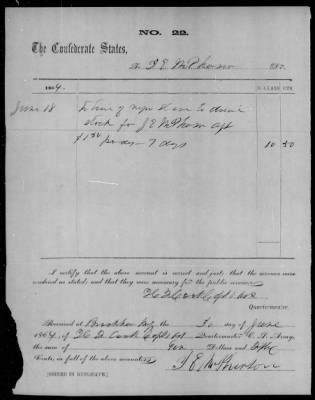 NO. 22.
The Confederate States,
To J E McPherson DR.
1864. DOLLARS CTS.
June 18 To hire of negro Sam to drive
stock for J E McPherson Agt
$1.50 per day - 7 days 10 50
I certify that the above account is correct and just; that the services were
rendered as stated; and that they were necessary for the public service.
Quartermaster.
Received at the 30 day of June
1864, of Quartermaster C. S. Army,
the sum of Ten Dollars and
Cents, in full of the above account.
J E McPherson
[SIGNED IN DUPLICATE.]